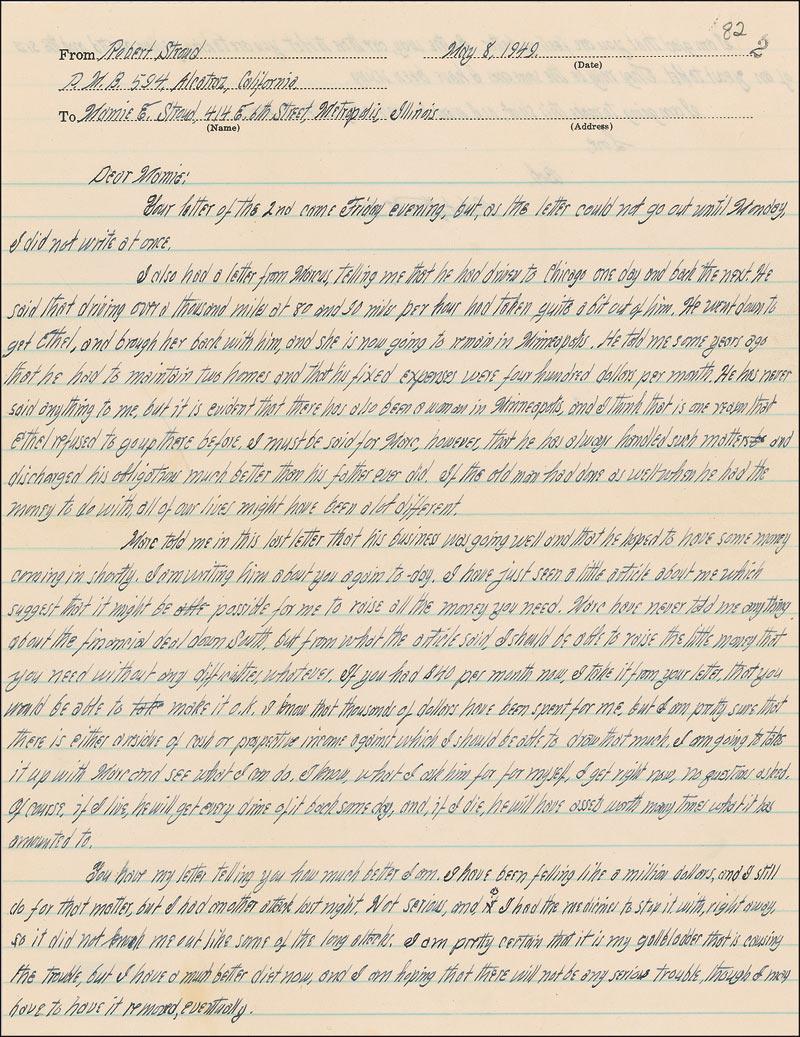 82
2
From Robert Stroud May 8, 1949.
(Date)
P.M.B. 594, Alcatraz, California
To Mamie E. Stroud, 414 E. 6th Street, Metropolis, Illinois.
(Name) (Address)
Dear Mamie:
Your letter of the 2nd come Friday evening, but, as the letter could not go out until Monday,
I did not write at once.
I also had a letter from Marcus, telling me that he had driven to Chicago one day and back the next. He
said that driving over a thousand miles at 80 and 90 mile per hour had taken quite a bit out of him. He went down to
get Ethel, and brough her back with him, and she is now going to remain in Minneapolis. He told me some years ago
that he had to maintain two homes and that his fixed expenses were four hundred dollars per month. He has never
said anything to me, but it is evident that there has also been a woman in Minneapolis, and I think that is one reason that
Ethel refused to go up there before. I must be said for Marc, however, that he has always handled such matters and
discharged his obligation much better than his father ever did. If the old man had done as well when he had the
money to do with, all of our lives might have been a lot different.
Marc told me in this last letter that his business was going well and that he hoped to have some money
coming in shortly. I am writing him about you again to-day. I have just seen a little article about me which
suggest that it might be possible for me to raise all the money you need. Marc have never told me anything
about the financial deal down South, but from what the article said, I should be able to raise the little money that
you need without any difficulties whatever. If you had $40 per month now, I take it from your letter, that you
would be able to take make it o.k. I know that thousands of dollars have been spent for me, but I am pretty sure that
there is either a residue of cash or prospective income against which I should be able to draw that much. I am going to take
it up with Marc and see what I can do. I know, what I ask him for for myself, I get right now, no questions asked.
Of course, if I live, he will get every dime of it back some day, and, if I die, he will have asset worth many times what it has
amounted to.
You have my letter telling you how much better I am. I have been felling like a million dollars, and I still
do for that matter, but I had another attack last night. Not serious, and I had the medicines to stop it with, right away,
so it did not knock me out like some of the long attacks. I am pretty certain that it is my gallbladder that is causing
the trouble, but I have a much better diet now, and I am hoping that there will not be any serious trouble, though I may
have to have it removed, eventually.